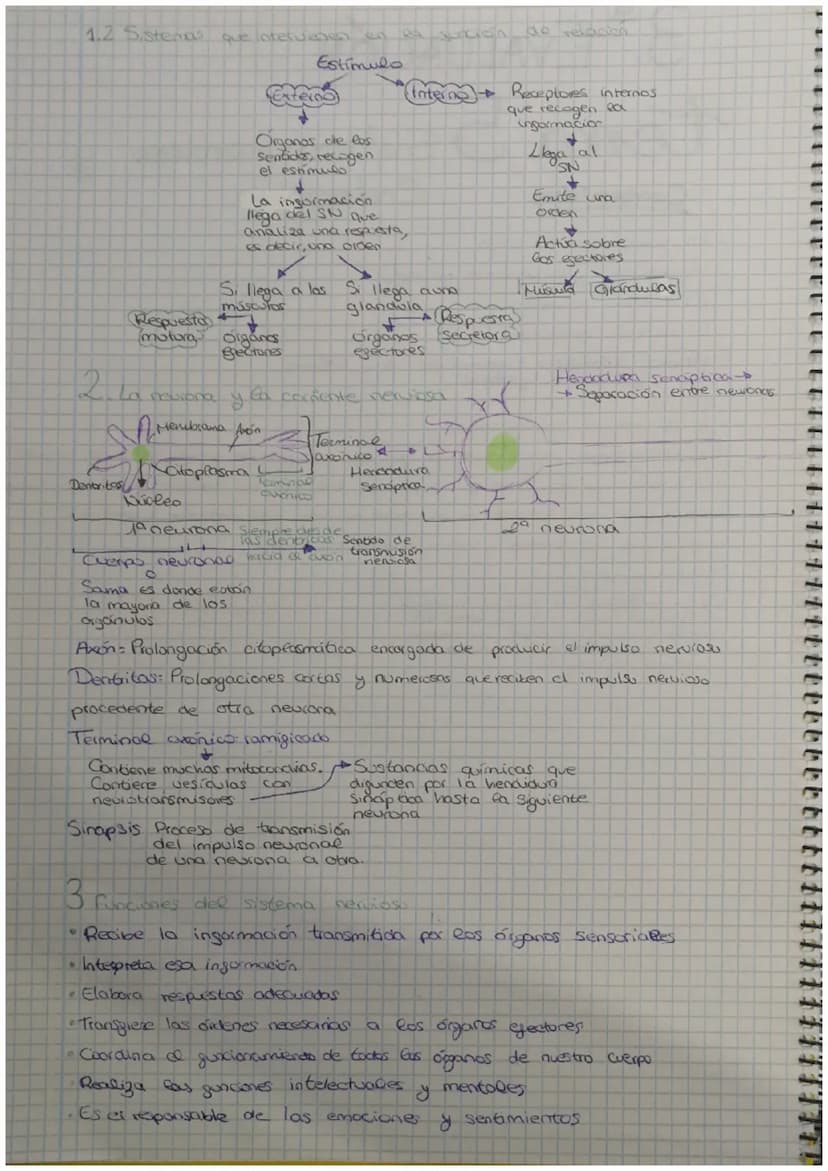 1.2 Sistemas que intervienen en la función de relación
Estímulo
Externo
Interno
Receptores internos
que recogen la
información
Órganos de los
sentidos, recogen
el estímulo
Llega al
SN
La información
llega del SN que
analiza una respuesta,
es decir, una orden
Emite una
orden
Actúa sobre
los efectores
Músculo
Glándulas
Si llega a los
músculos
Si llega a una
glándula
Respuesta
motora
órganos
efectores
órganos
efectores
Respuesta
secretora
2. La neurona y la corriente nerviosa
Hendidura sináptica →
→ Separación entre neuronas
Membrana
Axón
Terminal
axónico
Citoplasma
Terminal
axónico
Hendidura
Sináptica
Dentritas
Núcleo
1ª neurona
siempre desde
las dentritas
hacia el axón
Sentido de
transmisión
nerviosa
2ª neurona
Cuerpo neuronal
Soma es donde están
la mayoría de los
orgánulos
Axón = Prolongación citoplasmática encargada de producir el impulso nervioso
Dentritas: Prolongaciones cortas y numerosas que reciben el impulso nervioso
procedente de otra neurona
Terminal axónico ramificado
Contiene muchas mitocondrias.
Contiene vesículas con
neurotransmisores
Sustancias químicas que
difunden por la hendidura
sináptica hasta la siguiente
neurona
Sinapsis Proceso de transmisión
del impulso neuronal
de una neurona a otra.
3 Funciones del sistema nervioso
• Recibe la información transmitida por los órganos sensoriales
• Interpreta esa información
• Elabora respuestas adecuadas
• Transfiere las órdenes necesarias a los órganos efectores
• Coordina el funcionamiento de todos los órganos de nuestro cuerpo
• Realiza las funciones intelectuales y mentales
• Es el reponsable de las emociones y sentimientos